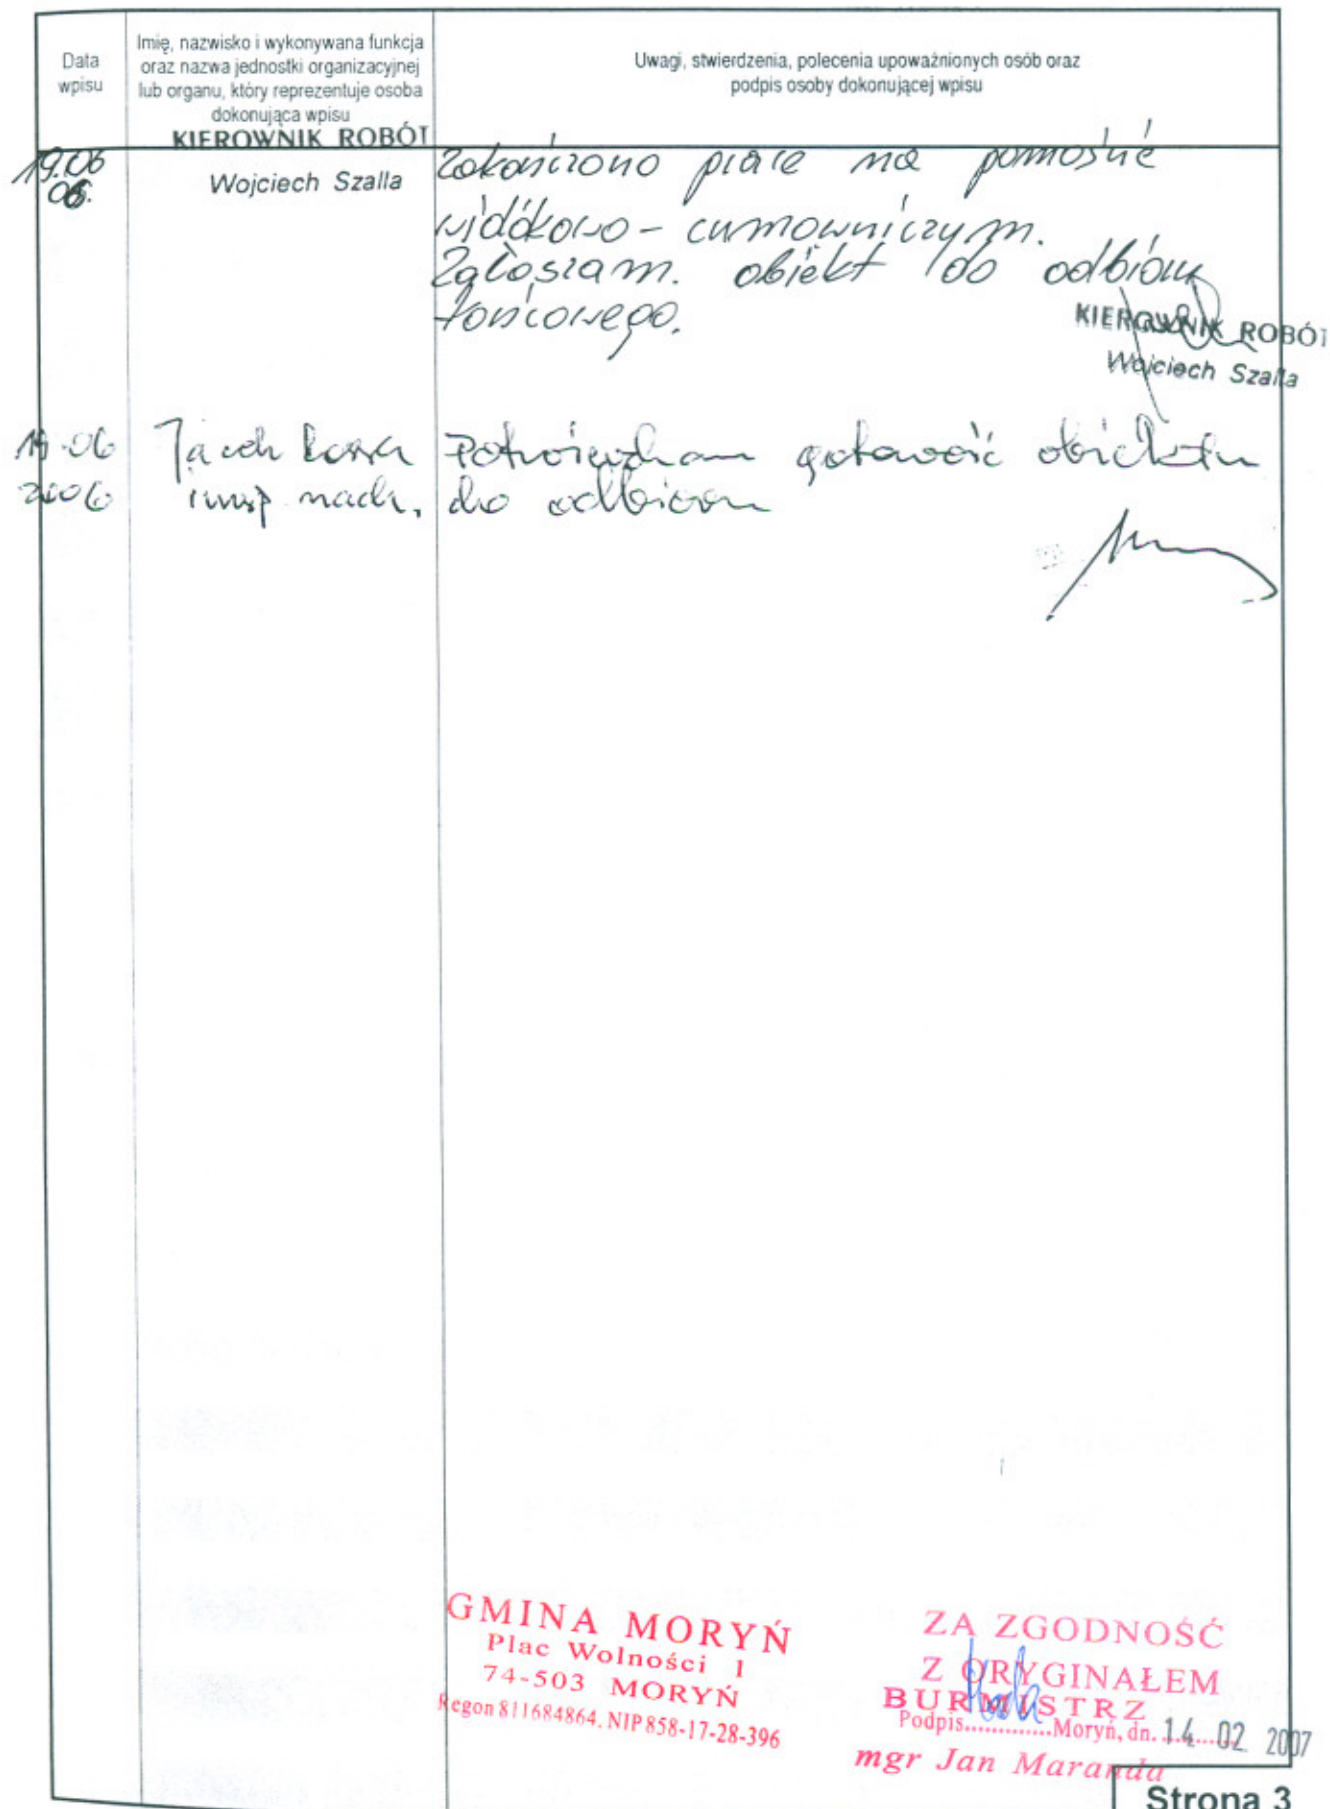 Data
wpisu
Imię, nazwisko i wykonywana funkcja
oraz nazwa jednostki organizacyjnej
lub organu, który reprezentuje osoba
dokonująca wpisu
Uwagi, stwierdzenia, polecenia upoważnionych osób oraz
podpis osoby dokonującej wpisu
19.06
06.
KIEROWNIK ROBÓT
Wojciech Szalla
Zakończono prace na pomoście
widokowo - cumowniczym.
Zgłaszam. obiekt do odbioru
końcowego.
KIEROWNIK ROBÓT
Wojciech Szalla
19-06
2006
Jacek
insp nadz.
Potwierdzam gotowość obiektu
do odbioru
GMINA MORYŃ
Plac Wolności 1
74-503 MORYŃ
Regon 811684864, NIP 858-17-28-396
ZA ZGODNOŚĆ
Z ORYGINAŁEM
BURMISTRZ
Podpis.............Moryń, dn. 14. 02. 2007
mgr Jan Maranda
Strona 3